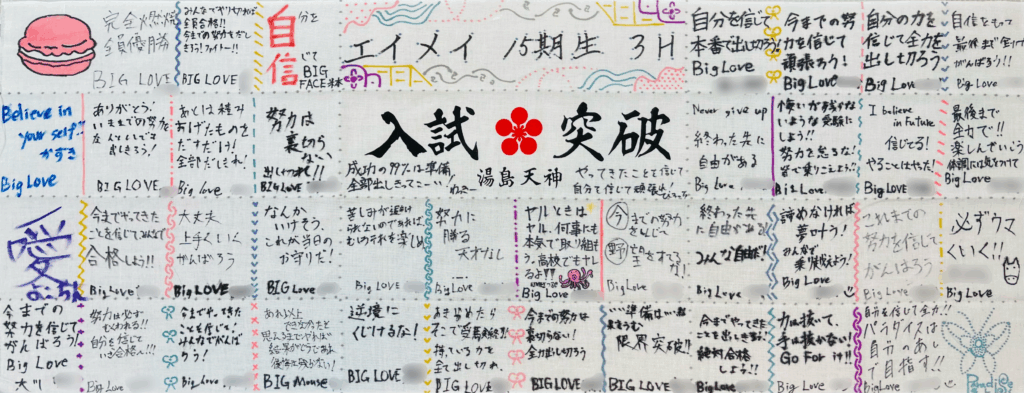 完全燃焼
全員優勝
BIG LOVE
みんなでやりぬけば
全員合格!!
今までの努力をだし
きろう!ファイトー!!
BIG LOVE
自分を
信じて
BIG
FACE
エイメイ 15期生 3H
自分を信じて
本番で出し切ろう!
Big Love
今までの努
力を信じて
頑張ろう!
Big Love
自分の力を
信じて全力を
出し切ろう
Big Love
自信をもって
最後まで全力で
がんばろう!!
Big Love
Believe in
your self!!
かずき
Big Love
ありがとう!
いままでの努力を
BIG LOVE
あとは積み
あげたものを
だすだけ!
全部だしきれ!
Big love
努力は
裏切ら
ない
出しきれ!!
BIG LOVE
入試突破
湯島天神
成功のカギは準備
全部出しきってこーい!
やってきたことを信じて
自分を信じて頑張れ
Never give up
終わった先に
自由がある
Big Love
悔いが残らな
いような受験に
しよう!!
努力を怠るな!
皆で乗りこえよう!
Big Love
I believe
in Future
信じてる!
やることはやった!
Big Love
最後まで
全力で!!
楽しんでいこう
体調には気をつけて
Big Love
愛
今までやってきた
ことを信じてみんなで
合格しよう!!
Big Love
大丈夫
上手くいく
がんばろう
Big LOVE
なんか
いけそう。
これが当日の
お守りだ!
BIG LOVE
Big love
努力に
勝る
天才なし
…
Big Love
ヤルときは
ヤル。何事にも
本気で取り組も
う。高校でもヤレ
るよ!!
Big Love
今までの努力
を信じて
Big Love
終わった先
に自由がある
みんな自由だ!
Big Love
諦めなければ
夢は叶う!
みんなで
乗り越えよう!
Big Love
これまでの
努力を信じて
がんばろう
Big Love
必ずウマ
くいく!!
Big Love
今までの
努力を信じて
がんばろう!
Big Love
努力は必ず
むくわれる!!
自分を信じて
いざ合格へ!!
Big Love
今までやってきた
ことを信じて、
みんなでがんば
ろう!
Big Love
BIG Mouse
逆境に
くじけるな!
BIG LOVE
BIG LOVE
今までの努力は
裏切らない!
全力出し切ろう
BIG LOVE
限界突破!!
BIG LOVE
今までやってきた
ことを出しきって
絶対合格
しよう!!
Big Love
力は抜いて、
手は抜かない!
Go For it!!
Big Love
自分を信じて全力!
パラダイスは
自分のあし
で目指す!!
Big Love
Paradise